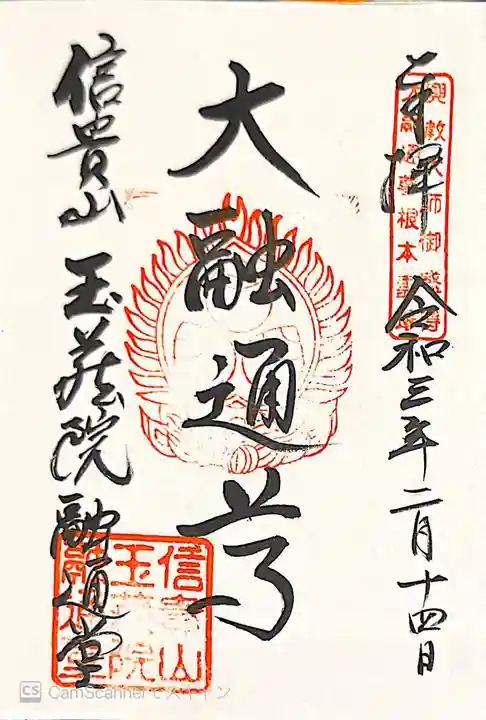 奉拝
令和三年二月十四日
興教大師御感得
大融通尊根本霊場
大融通尊
信貴山 玉蔵院 融通堂
信貴山
玉蔵院
融通堂
CS CamScanner でスキャン